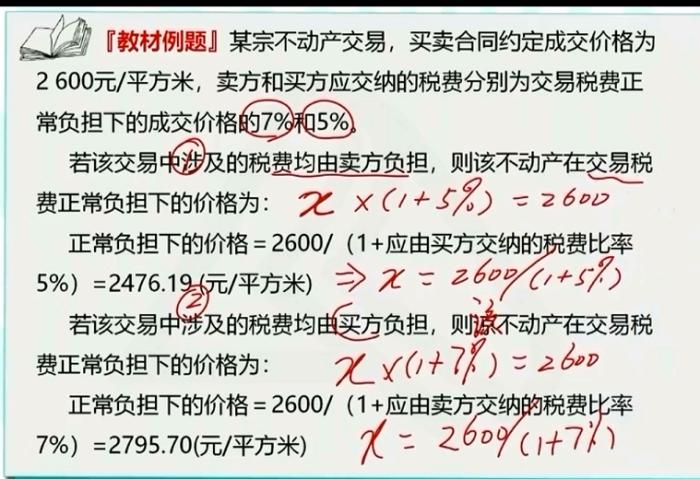 『教材例题』某宗不动产交易，买卖合同约定成交价格为
2 600元/平方米，卖方和买方应交纳的税费分别为交易税费正
常负担下的成交价格的7%和5%。
①
若该交易中涉及的税费均由卖方负担，则该不动产在交易税
费正常负担下的价格为：
x ×(1+5%) = 2600
正常负担下的价格＝2600/（1+应由买方交纳的税费比率
5%）=2476.19 (元/平方米)
⇒ x = 2600/(1+5%)
②
若该交易中涉及的税费均由买方负担，则该不动产在交易税
费正常负担下的价格为：
x ×(1+7%) = 2600
正常负担下的价格＝2600/（1+应由卖方交纳的税费比率
7%）=2795.70(元/平方米)
x = 2600/(1+7%)